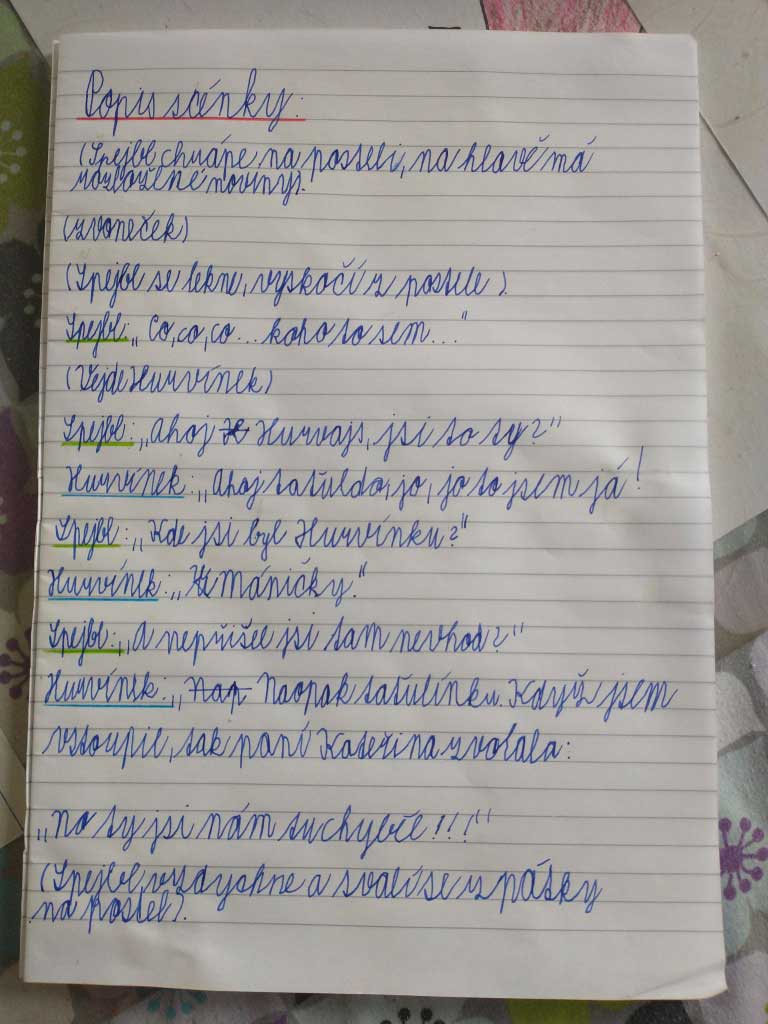 Popis scénky:
(Spejbl chrápe na posteli, na hlavě má
rozložené noviny).
(zvoneček)
(Spejbl se lekne, vyskočí z postele).
Spejbl: „Co, co, co... koho to sem..."
(Vejde Hurvínek)
Spejbl: „Ahoj Hurvajs, jsi to ty?"
Hurvínek: „Ahoj taťuldo, jo, jo to jsem já!
Spejbl: „Kde jsi byl Hurvínku?"
Hurvínek: „U Máničky."
Spejbl: „A nepřišel jsi tam nevhod?"
Hurvínek: „Nap Naopak taťulínku. Když jsem
vstoupil, tak paní Kateřina zvolala:
„no ty jsi nám tu chyběl!!!"
(Spejbl vzdychne a svalí se zpátky
na postel).